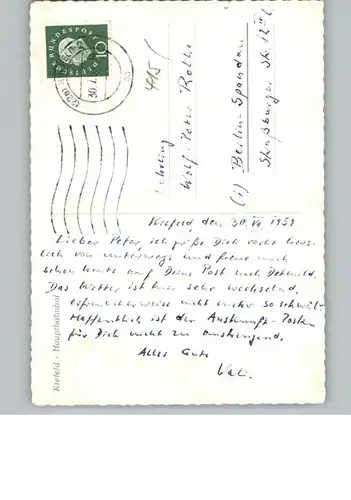 DEUTSCHE BUNDESPOST
10
30.7.
Lehrling
Wolf-Peter Rothe
(1) Berlin-Spandau
Krefeld, den 30. VII. 1959
Lieber Peter, ich grüße Dich recht herz-
lich von unterwegs und freue mich
schon heute auf Deine Post nach Detmold.
Das Wetter ist hier sehr wechselnd,
erfreulicherweise nicht mehr so schwül.
Hoffentlich ist der Auskunfts-Posten
für Dich nicht zu anstrengend.
Alles Gute
Vati.
Krefeld - Hauptbahnhof